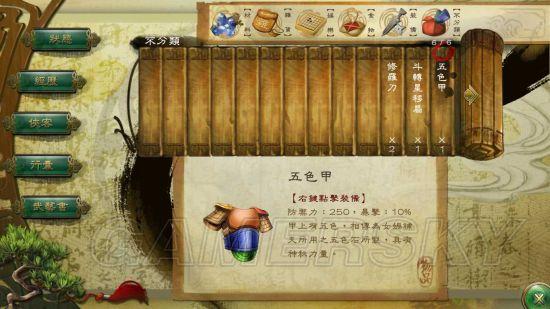 狀態
經歷
俠客
行囊
武藝書
不分類
【材料】
【雜貨】
【食物】
【裝備】
【不分類】
6/6
五色甲
×1
斗轉星移扇
×1
修羅刀
×2
五色甲
【右鍵點擊裝備】
防禦力：250，暴擊：10%
甲上有五色，相傳為女媧補
天所用之五色石所製，具有
神秘力量。
物品
GAMERSKY